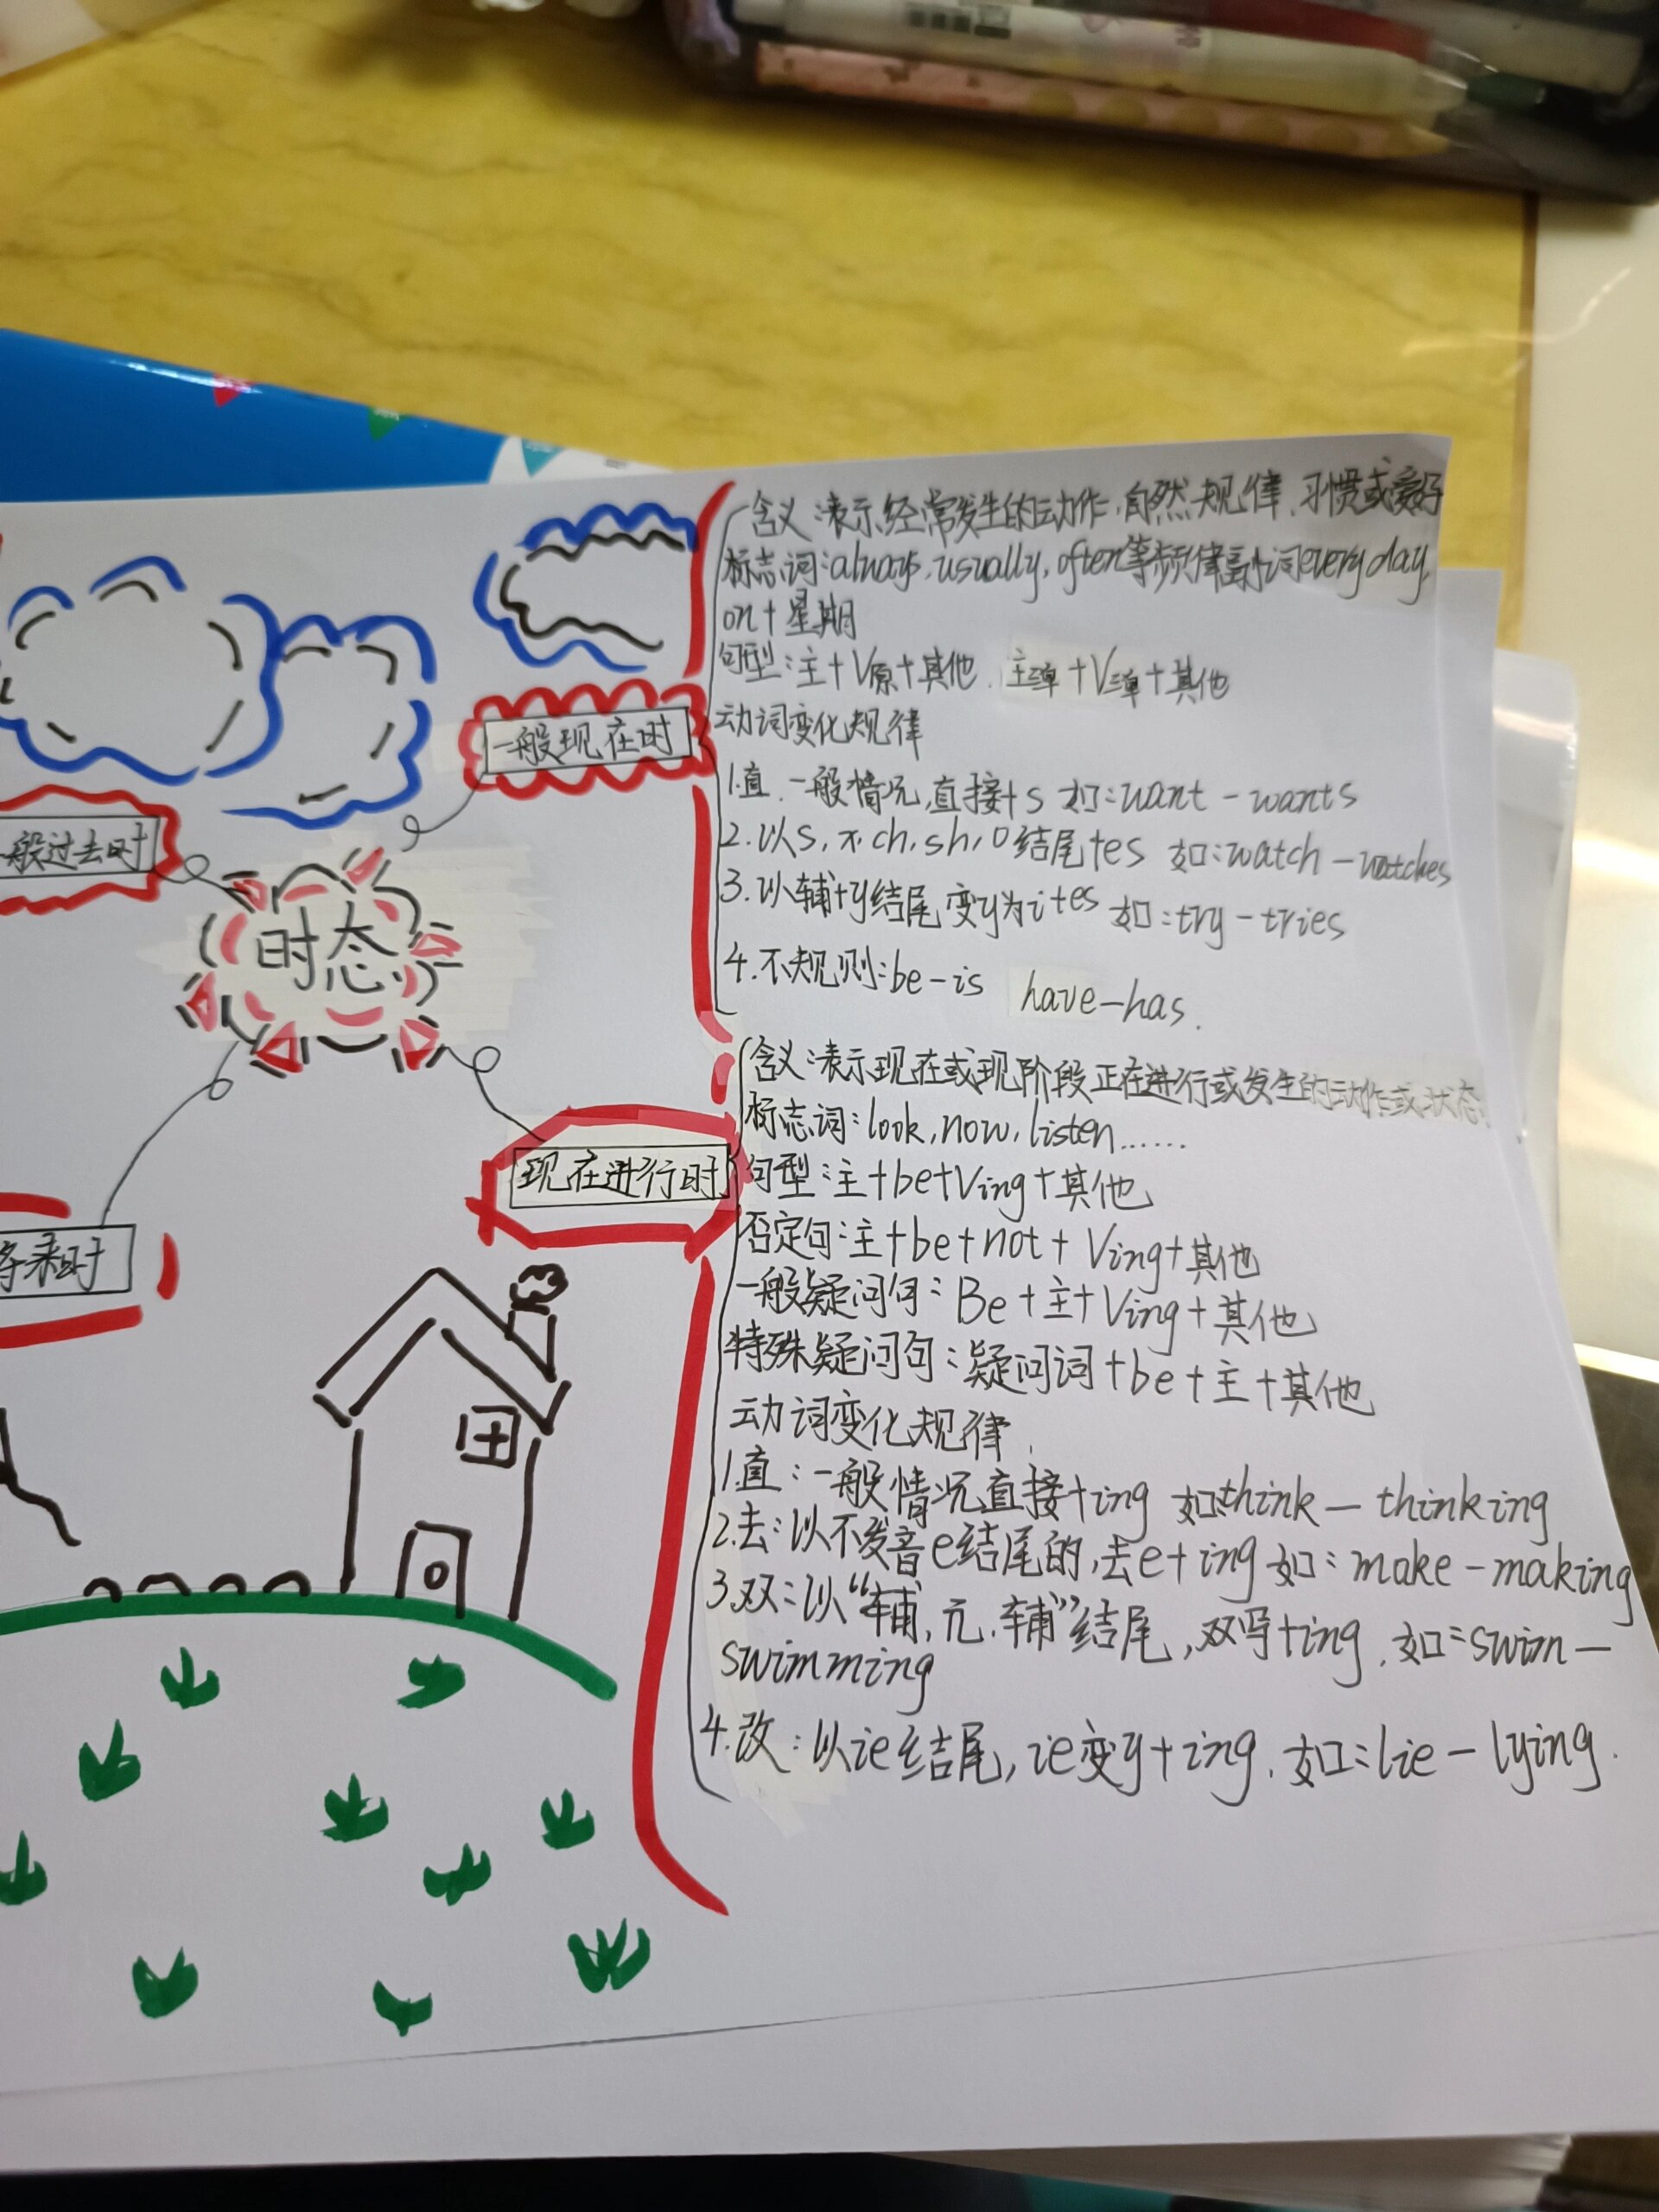 含义:表示经常发生的动作,自然规律、习惯或爱好
标志词:always,usually,often等频律副词everyday,
on+星期
句型:主+V原+其他. 主三单+V三单+其他
一般现在时
动词变化规律
1.直.一般情况,直接+s 如:want-wants
2.以s,x,ch,sh,o结尾+es 如:watch-watches
3.以辅+y结尾变y为i+es 如:try-tries
4.不规则:be-is have-has.
般过去时
时态
含义:表示现在或现阶段正在进行或发生的动作或状态
标志词:look,now,listen......
现在进行时
句型:主+be+Ving+其他
否定句:主+be+not+Ving+其他
一般疑问句:Be+主+Ving+其他
特殊疑问句:疑问词+be+主+其他
来时
动词变化规律.
1.直:一般情况直接+ing 如:think-thinking
2.去:以不发音e结尾的,去e+ing 如:make-making
3.双:以“辅,元,辅”结尾,双写+ing.如:swim-
swimming
4.改:以ie结尾,ie变y+ing.如:lie-lying.